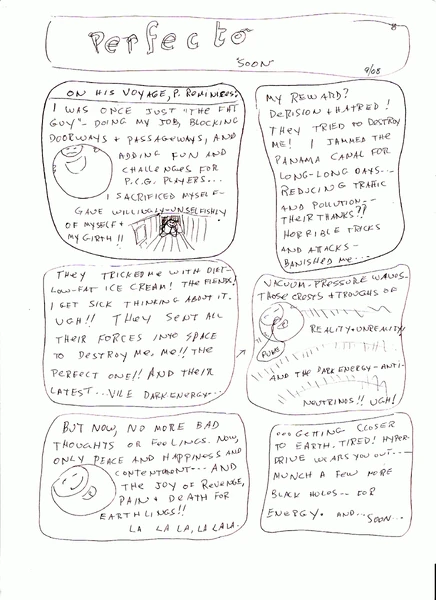 8
Perfecto
"SOON"
9/08
ON HIS VOYAGE, P. REMINISCES:
I WAS ONCE JUST "THE FAT
GUY"- DOING MY JOB, BLOCKING
DOORWAYS + PASSAGEWAYS, AND
ADDING FUN AND
CHALLENGES FOR
P.C.G. PLAYERS...
I SACRIFICED MYSELF-
GAVE WILLINGLY-UNSELFISHLY
OF MYSELF +
MY GIRTH!!
MY REWARD?
DERISION + HATRED!
THEY TRIED TO DESTROY
ME! I JAMMED THE
PANAMA CANAL FOR
LONG-LONG DAYS...
REDUCING TRAFFIC
AND POLLUTION-
THEIR THANKS??
HORRIBLE TRICKS
AND ATTACKS-
BANISHED ME...
THEY TRICKED ME WITH DIET-
LOW-FAT ICE CREAM! THE FIENDS!
I GET SICK THINKING ABOUT IT.
UGH!! THEY SENT ALL
THEIR FORCES INTO SPACE
TO DESTROY ME, ME!! THE
PERFECT ONE!! AND THEIR
LATEST...VILE DARK-ENERGY...
VACUUM-PRESSURE WAVES-
THOSE CRESTS + TROUGHS OF
REALITY+UNREALITY,
PUKE
AND THE DARK ENERGY-ANTI-
NEUTRINOS!! UGH!
BUT NOW, NO MORE BAD
THOUGHTS OR FEELINGS. NOW,
ONLY PEACE AND HAPPINESS AND
CONTENTMENT... AND
THE JOY OF REVENGE,
PAIN + DEATH FOR
EARTHLINGS!!
LA LA LA, LA LALA.
...GETTING CLOSER
TO EARTH. TIRED! HYPER-
DRIVE WEARS YOU OUT...
MUNCH A FEW MORE
BLACK HOLES-- FOR
ENERGY. AND...
SOON...